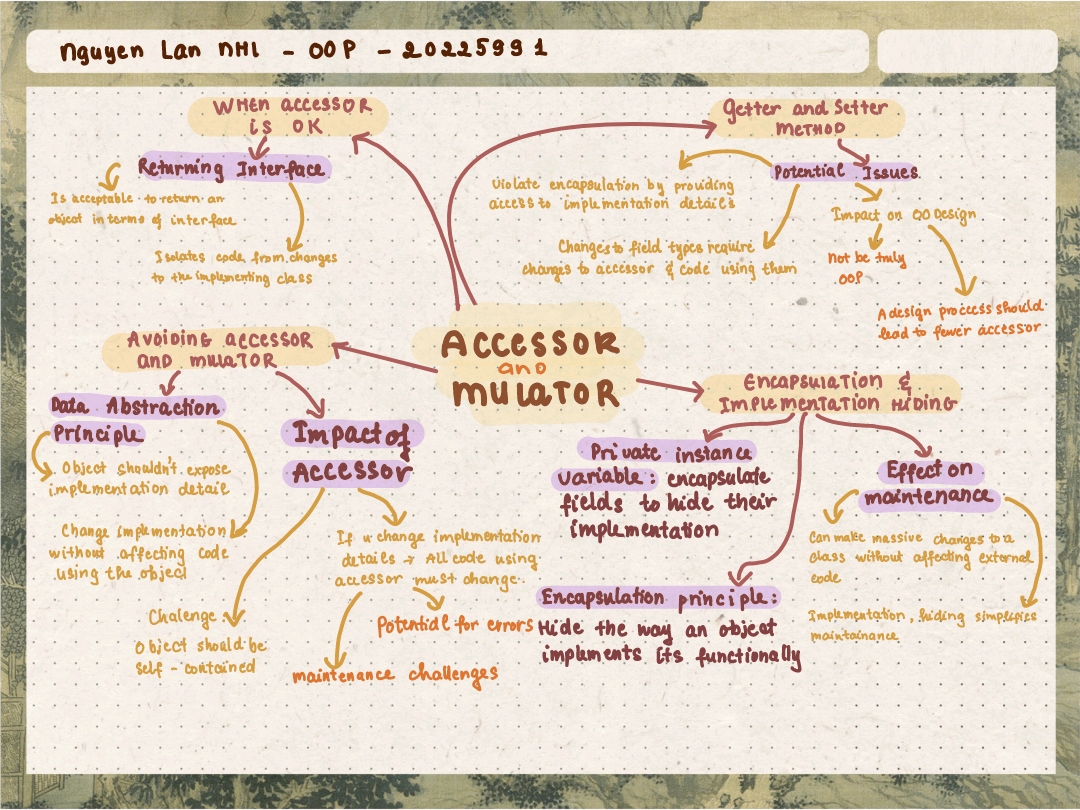 Nguyen Lan NHI - OOP - 20225991
WHEN ACCESSOR
IS OK
Returning Interface
Is acceptable to return an
object in terms of interface
Isolates code from changes
to the implementing class
Getter and Setter
METHOD
Potential Issues
Violate encapsulation by providing
access to implementation details
Changes to field types require
changes to accessor & code using them
Impact on OO Design
Not be truly
OOP
A design process should
lead to fewer accessor
ACCESSOR
and
MULATOR
AVOIDING ACCESSOR
AND MULATOR
Data Abstraction
Principle
Object shouldn't expose
implementation detail
Change implementation
without affecting code
using the object
Impact of
ACCESSOR
If u change implementation
details → All code using
accessor must change.
Chalenge
Object should be
self - contained
Potential for errors
maintenance challenges
ENCAPSULATION &
IMPLEMENTATION HIDING
Private instance
variable : encapsulate
fields to hide their
implementation
Encapsulation principle:
Hide the way an object
implements its functionally
Effect on
maintenance
Can make massive changes to a
class without affecting external
code
Implementation hiding simplifies
maintainance